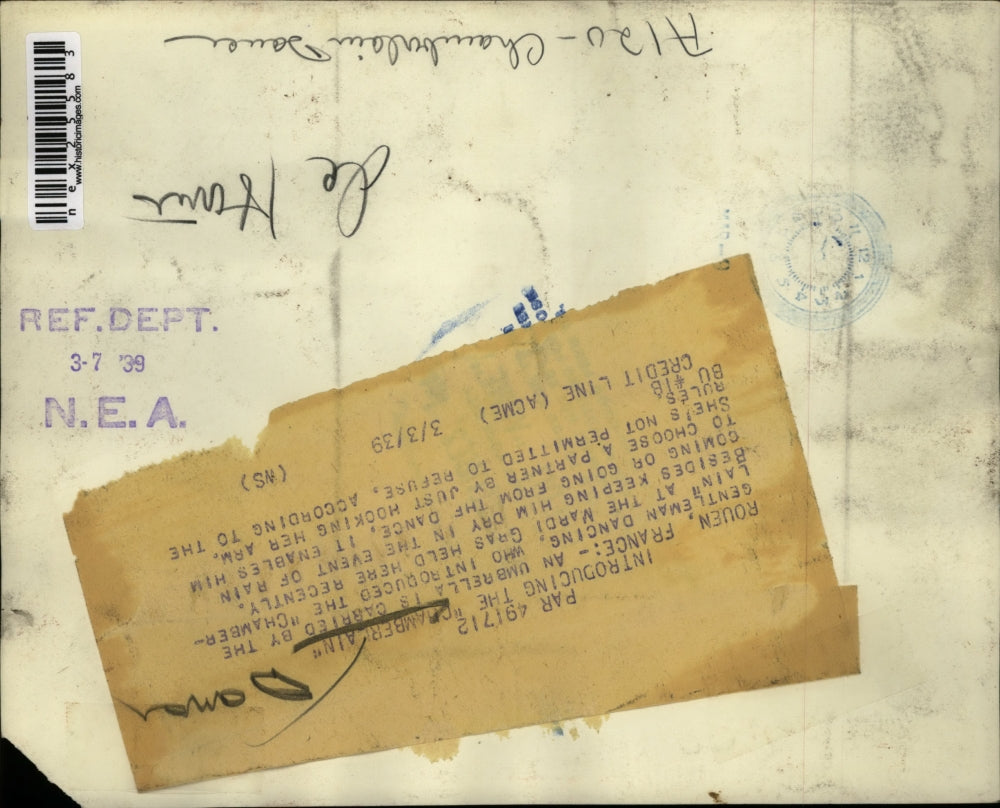 A120 - Chamberlain Dance
Le Havre
REF.DEPT.
3-7 '39
N.E.A.
nex25583
www.historicimages.com
PAR 491712
INTRODUCING THE "CHAMBERLAIN"
ROUEN, FRANCE:- AN UMBRELLA IS CARRIED BY THE
GENTLEMAN DANCING, WHO INTRODUCED THE "CHAMBER-
LAIN" AT THE MARDI GRAS HELD HERE RECENTLY.
BESIDES KEEPING HIM DRY IN THE EVENT OF RAIN
COMING OR GOING FROM THE DANCE, IT ENABLES HIM
TO CHOOSE A PARTNER BY JUST HOOKING HER ARM.
SHE'S NOT PERMITTED TO REFUSE, ACCORDING TO THE
RULES.
BU #1B
CREDIT LINE (ACME) 3/3/39 (WS)
Dance